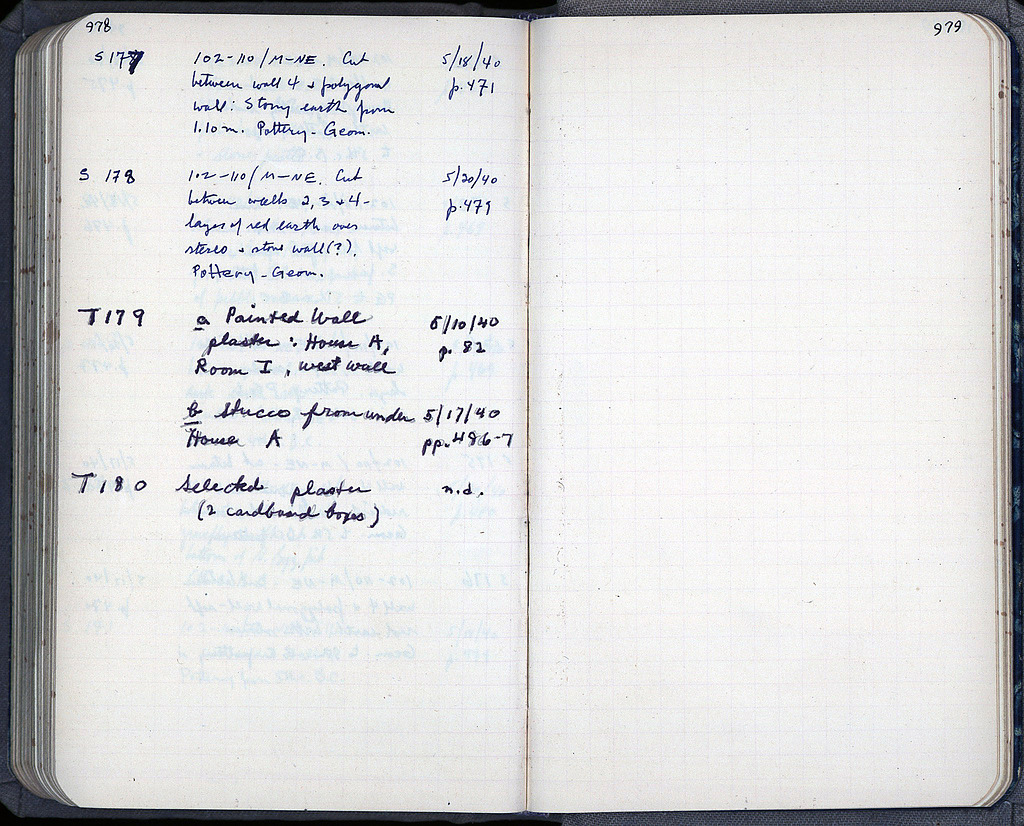 978
S 177 102-110/M-NE. Cut 5/18/40
between wall 4 + polygonal p.471
wall: Stony earth from
1.10 m. Pottery - Geom.
S 178 102-110/M-NE. Cut 5/20/40
between walls 2, 3 + 4- p.479
layer of red earth over
stereo + stone wall(?).
Pottery - Geom.
T 179 a Painted Wall 5/10/40
plaster: House A, p. 82
Room I, west wall
b Stucco from under 5/17/40
House A pp. 486-7
T 180 Selected plaster n.d.
(2 cardboard boxes)
979